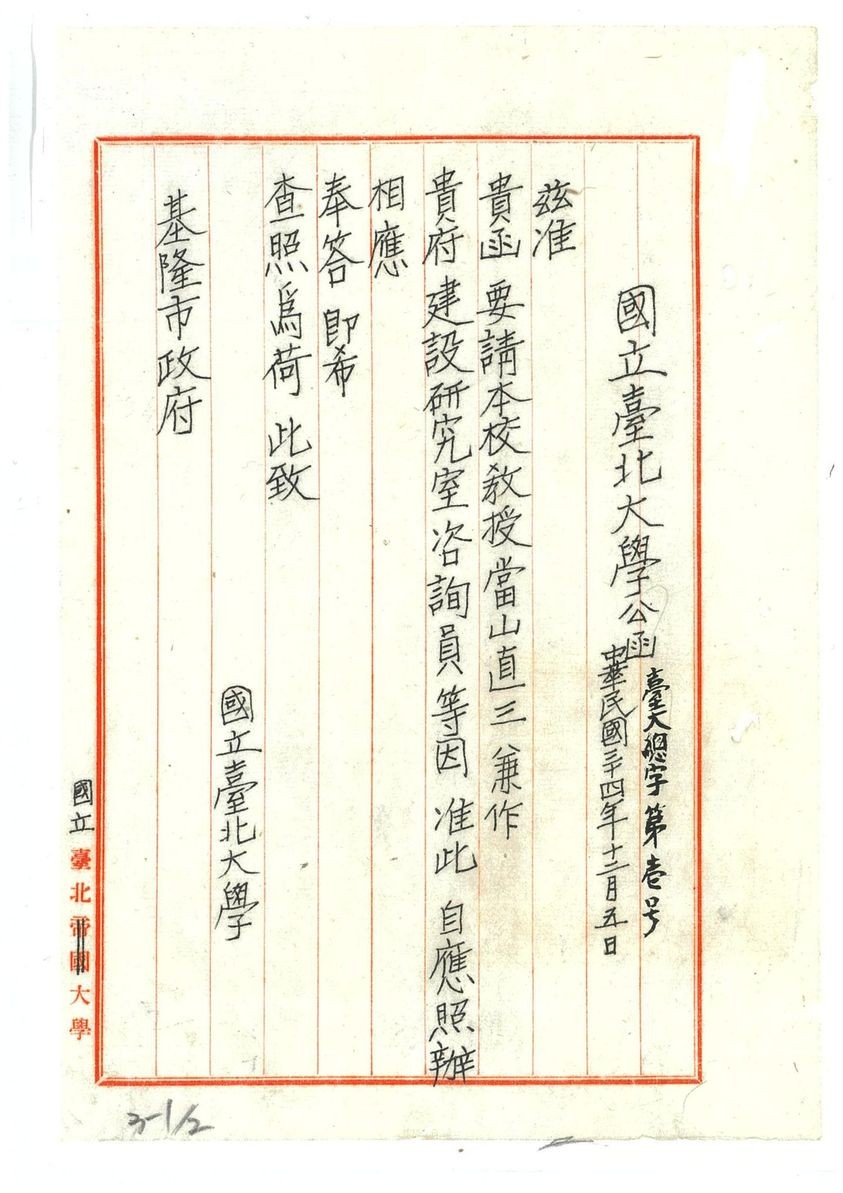 國立臺北大學公函
臺大總字第壱号
中華民國三十四年十二月五日
茲准
貴函 要請本校教授當山直三兼作
貴府建設研究室咨詢員等因 准此 自應照辦
相應
奉答 即希
查照爲荷 此致
國立臺北大學
基隆市政府
國立臺北帝國大學
3-1/2